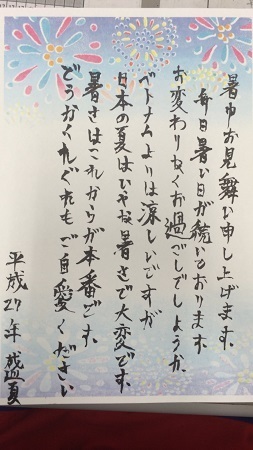 暑中お見舞い申し上げます
毎日暑い日が続いております
お変わりなくお過ごしでしょうか
ベトナムよりは涼しいですが
日本の夏はいやな暑さで大変です
暑さはこれからが本番です
どうかくれぐれもご自愛ください
平成27年 盛夏